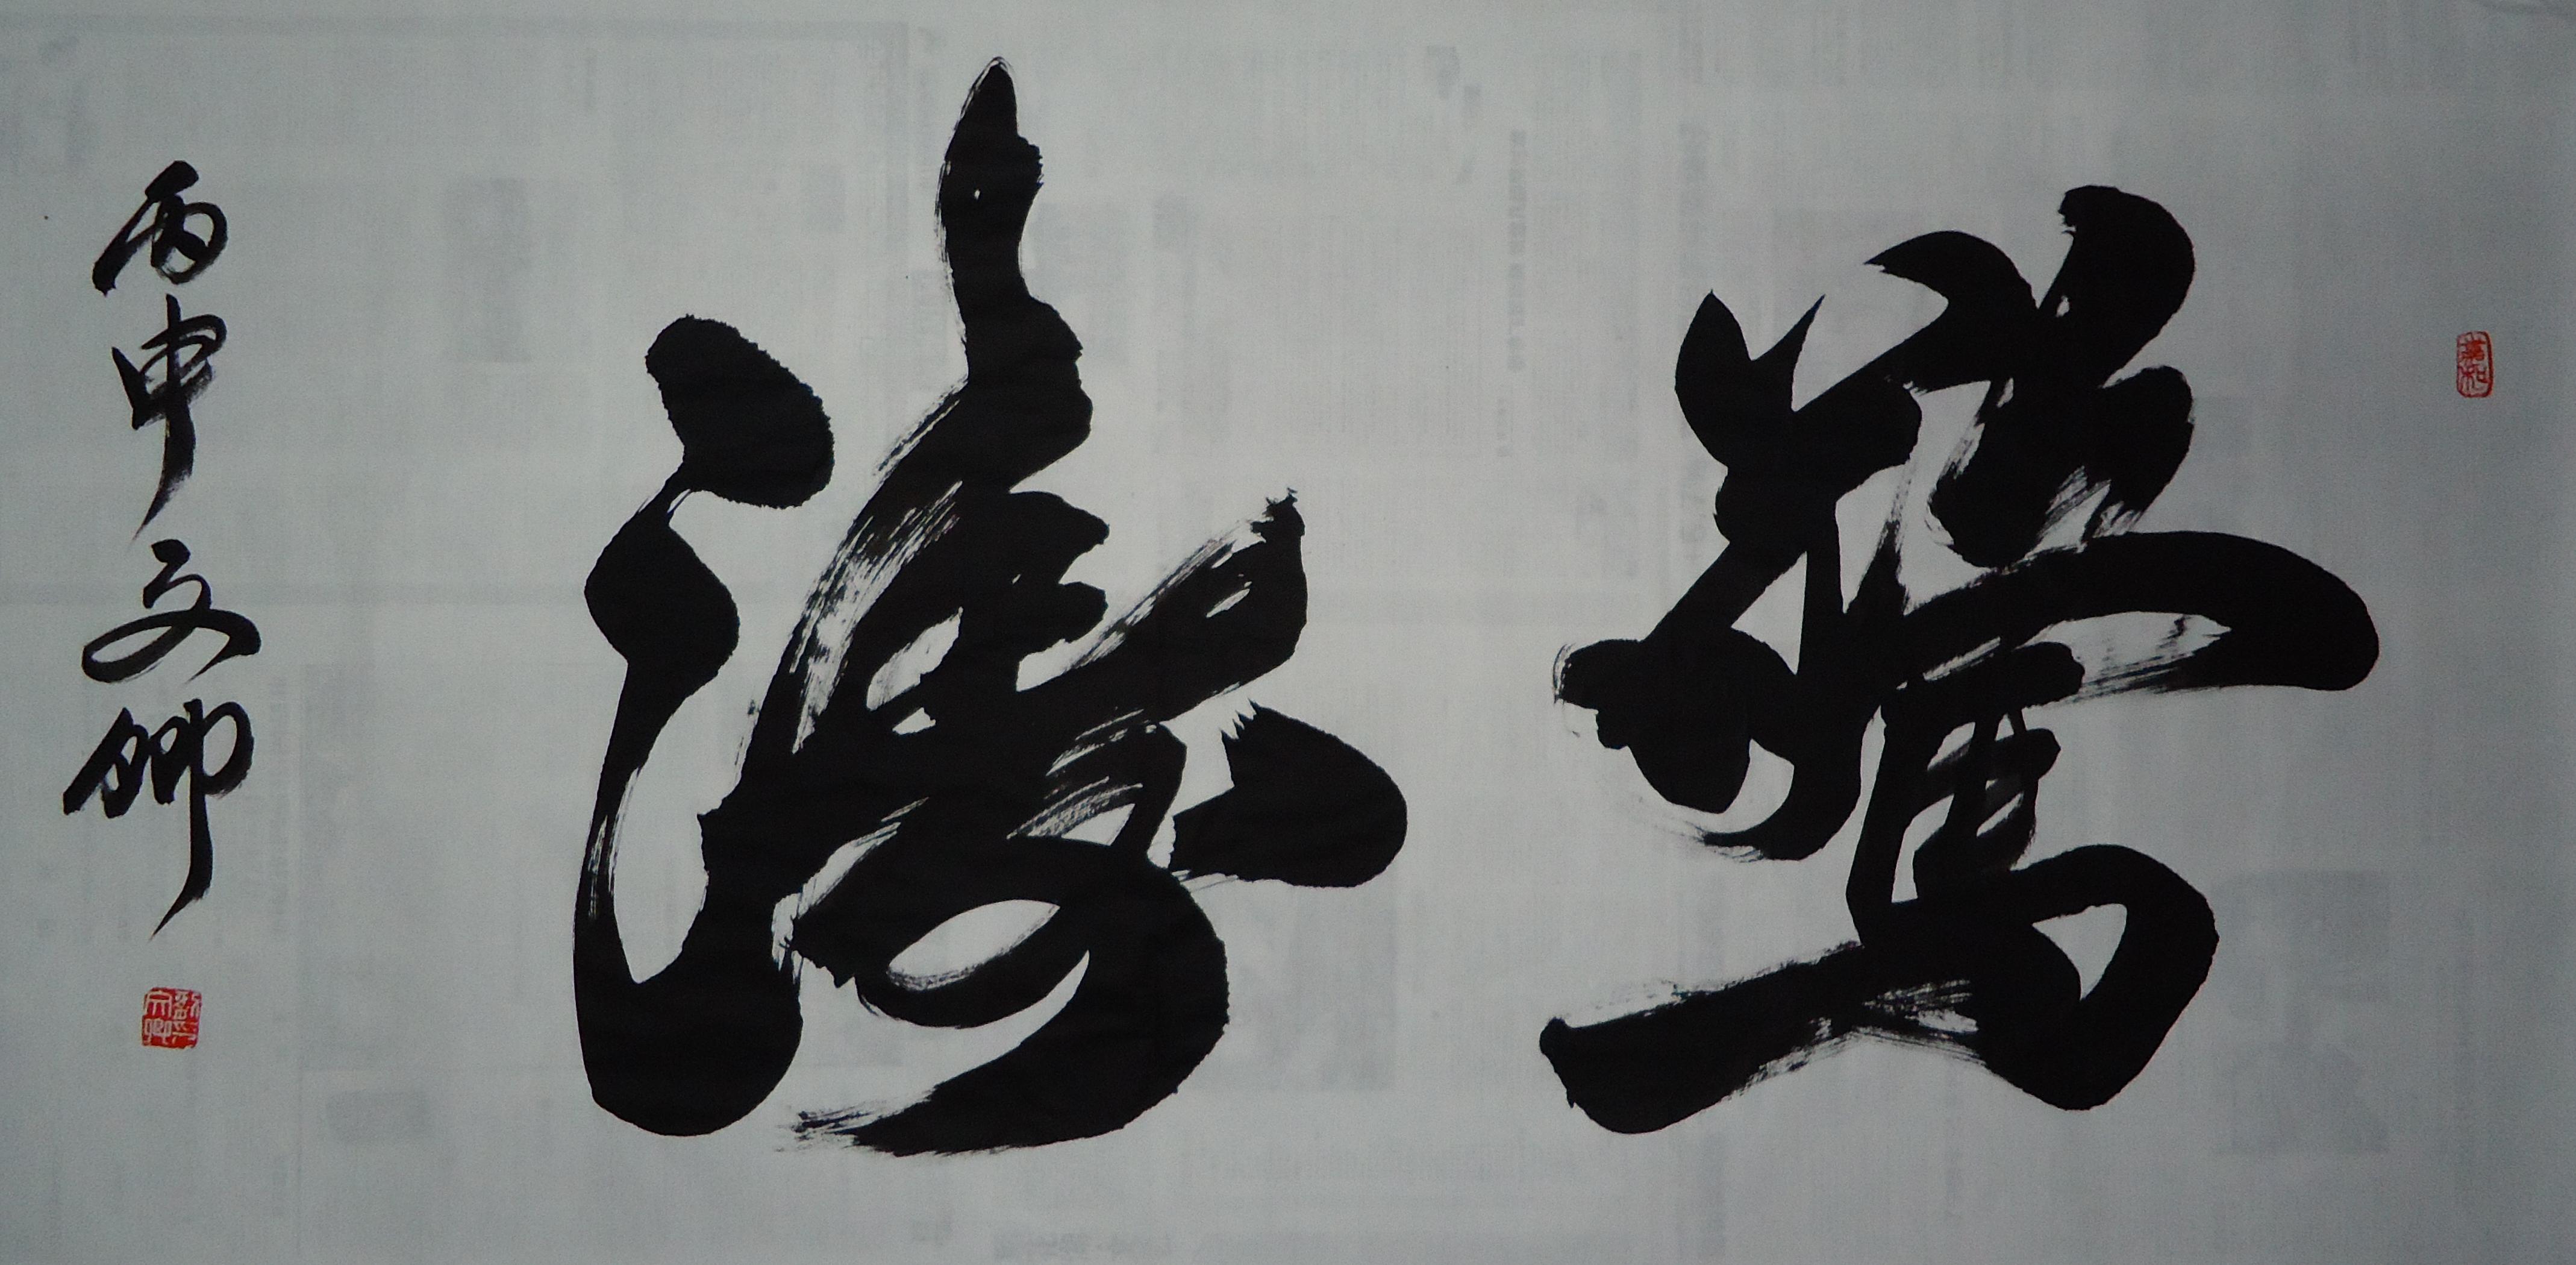 驚濤
丙申文卿